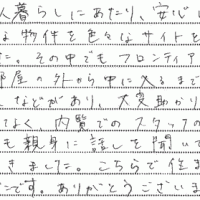 人暮らしにあたり、安心し
な物件を色々なサイトを
た。その中でもフロンティア
部屋の外から中に入るまで
などがあり、大変助かり
でなく、内覧でのスタッフの
も親身に話しを聞いて
きました。こちらで住ま
です。ありがとうございま